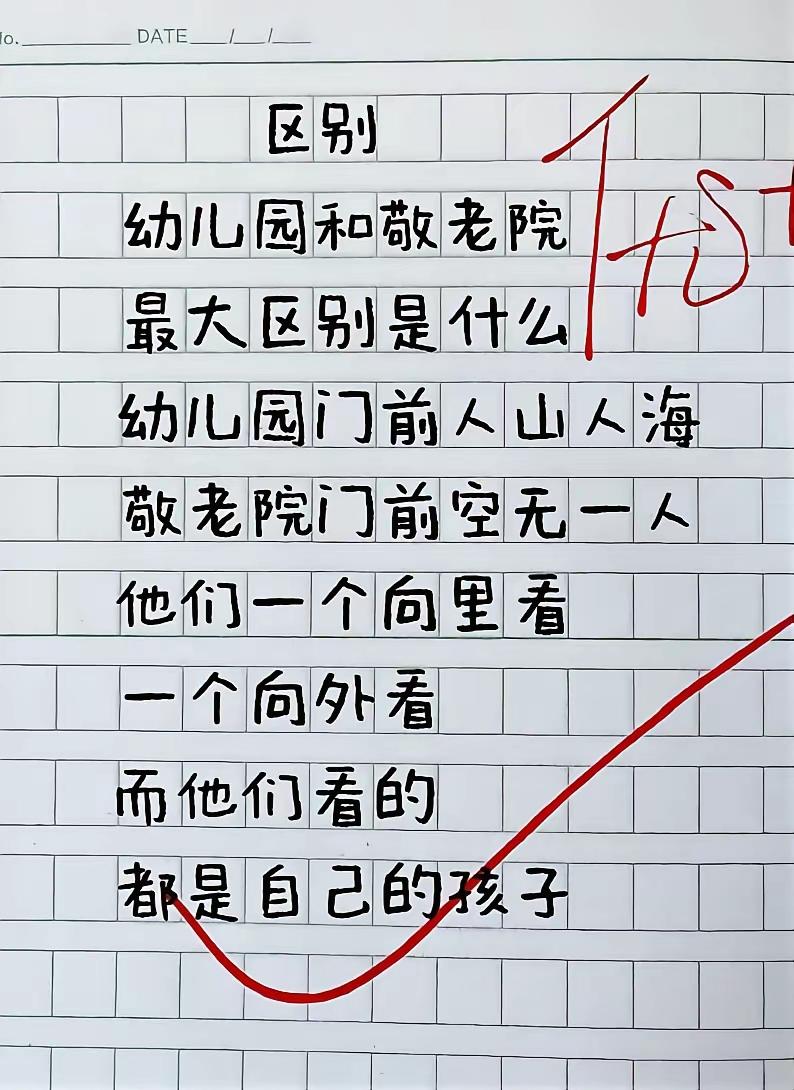 No. DATE / /
区别
幼儿园和敬老院
最大区别是什么
幼儿园门前人山人海
敬老院门前空无一人
他们一个向里看
一个向外看
而他们看的
都是自己的孩子